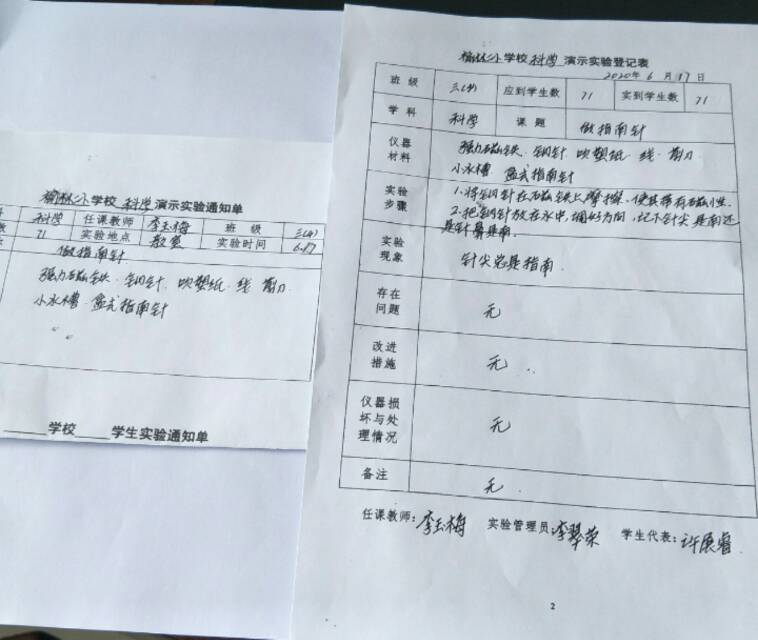 榆林小学校 科学 演示实验通知单
科学 任课教师 李玉梅 班 级 三(4)
数 71 实验地点 教室 实验时间 6.17
做指南针
强力磁铁 钢针 吹塑纸 线 剪刀
小水槽 盘式指南针
学校 学生实验通知单
榆林小学校 科学 演示实验登记表
2020年 6 月 17 日
班 级 三(4) 应到学生数 71 实到学生数 71
学 科 科学 课 题 做指南针
仪器材料 强力磁铁 钢针 吹塑纸 线 剪刀
小水槽 盘式指南针
实验步骤 1.将钢针在磁铁上摩擦,使其带有磁性.
2.把钢针放在水中,调好方向,记下针尖是南还
是针鼻是南.
实验现象 针尖总是指南.
存在问题 无
改进措施 无
仪器损坏与处理情况 无
备注 无.
任课教师:李玉梅 实验管理员:李翠荣 学生代表:许展睿
2